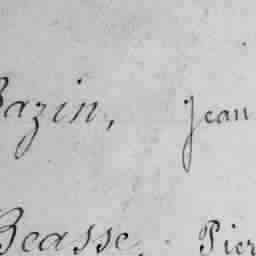 Bazin, Jean
Beasse, Pier